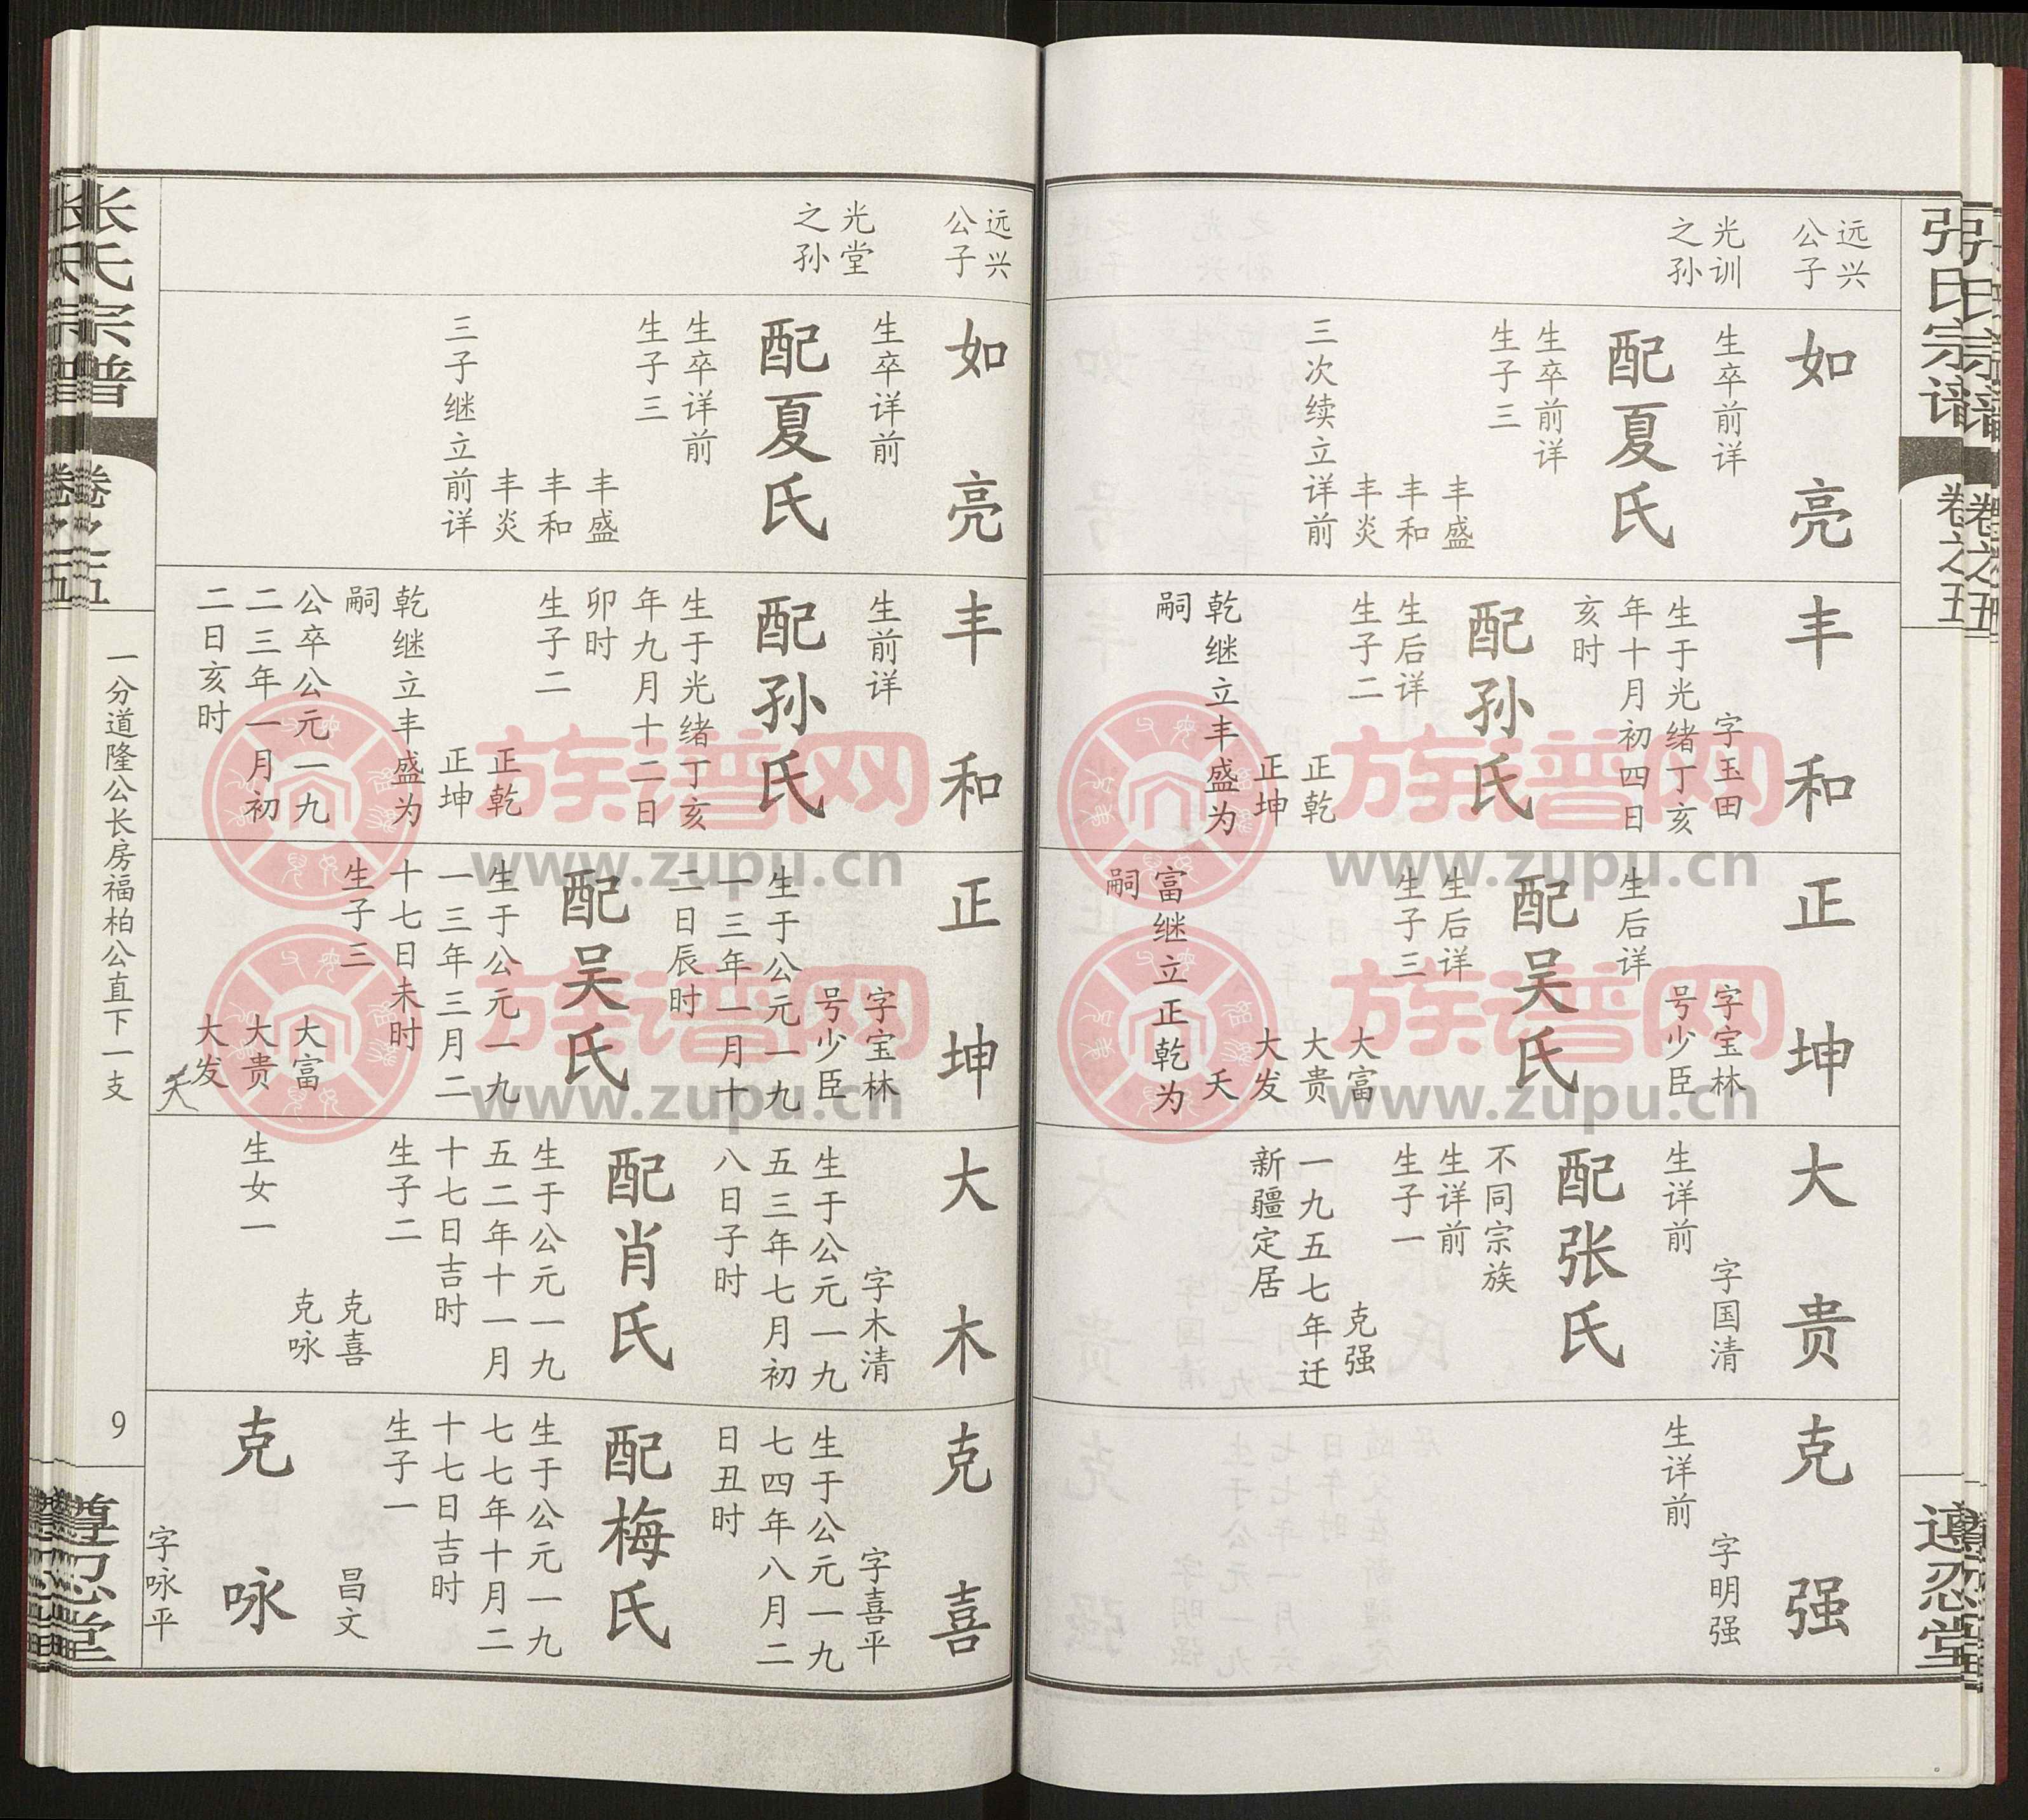 张氏宗谱
卷之五
遵忍堂
远兴
公子
光训
之孙
如亮
生卒前详
配夏氏
生卒前详
生子三
丰盛
丰和
丰炎
三次续立详前
丰和
字玉田
生于光绪丁亥
年十月初四日
亥时
配孙氏
生后详
生子二
正乾
正坤
乾继立丰盛为
嗣
正坤
字宝林
号少臣
生后详
配吴氏
生后详
生子三
大富
大贵
大发
夭
富继立正乾为
嗣
大贵
字国清
生详前
配张氏
不同宗族
生详前
生子一
克强
一九五七年迁
新疆定居
克强
字明强
生详前
远兴
公子
光堂
之孙
如亮
生卒详前
配夏氏
生卒详前
生子三
丰盛
丰和
丰炎
三子继立前详
丰和
生前详
配孙氏
生于光绪丁亥
年九月十二日
卯时
生子二
正乾
正坤
乾继立丰盛为
嗣
公卒公元一九
二三年一月初
二日亥时
正坤
字宝林
号少臣
生于公元一九
一三年一月十
二日辰时
配吴氏
生于公元一九
一三年三月二
十七日未时
生子三
大富
大贵
大发
夭
大木
字木清
生于公元一九
五三年七月初
八日子时
配肖氏
生于公元一九
五二年十一月
十七日吉时
生子二
克喜
克咏
生女一
克喜
字喜平
生于公元一九
七四年八月二
日丑时
配梅氏
生于公元一九
七七年十月二
十七日吉时
生子一
昌文
克咏
字咏平
张氏宗谱
卷之五
一分道隆公长房福柏公直下一支
9
遵忍堂
族谱网
www.zupu.cn
族谱网
www.zupu.cn
族谱网
www.zupu.cn
族谱网
www.zupu.cn